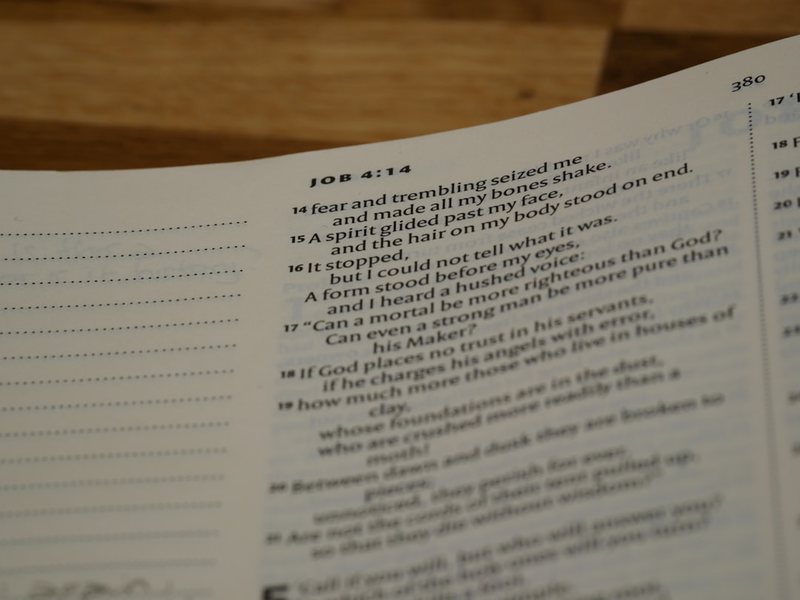 380
JOB 4:14
14 fear and trembling seized me
and made all my bones shake.
15 A spirit glided past my face,
and the hair on my body stood on end.
16 It stopped,
but I could not tell what it was.
A form stood before my eyes,
and I heard a hushed voice:
17 “Can a mortal be more righteous than God?
Can even a strong man be more pure than
his Maker?
18 If God places no trust in his servants,
if he charges his angels with error,
19 how much more those who live in houses of
clay,
whose foundations are in the dust,
who are crushed more readily than a
moth!
20 Between dawn and dusk they are broken to
pieces;
unnoticed, they perish for ever.
21 Are not the cords of their tent pulled up,
so that they die without wisdom?
5 “Call if you will, but who will answer you?
17
18
19
20
21